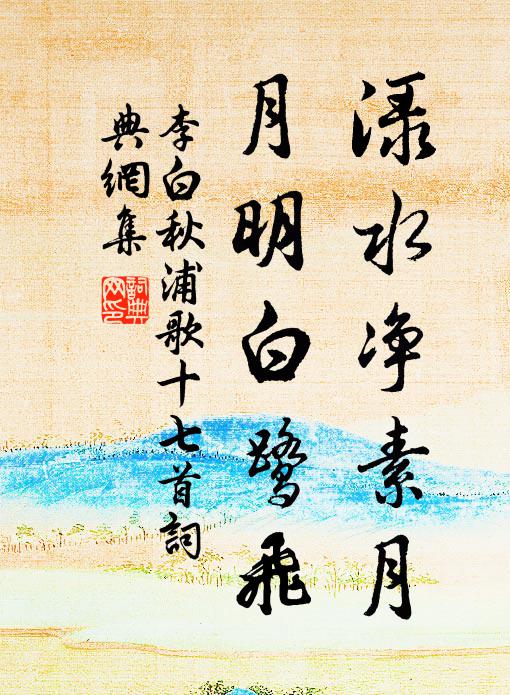 渌水净素月
月明白鹭飛
李白秋浦歌十七首詞
典網集
詞典網印